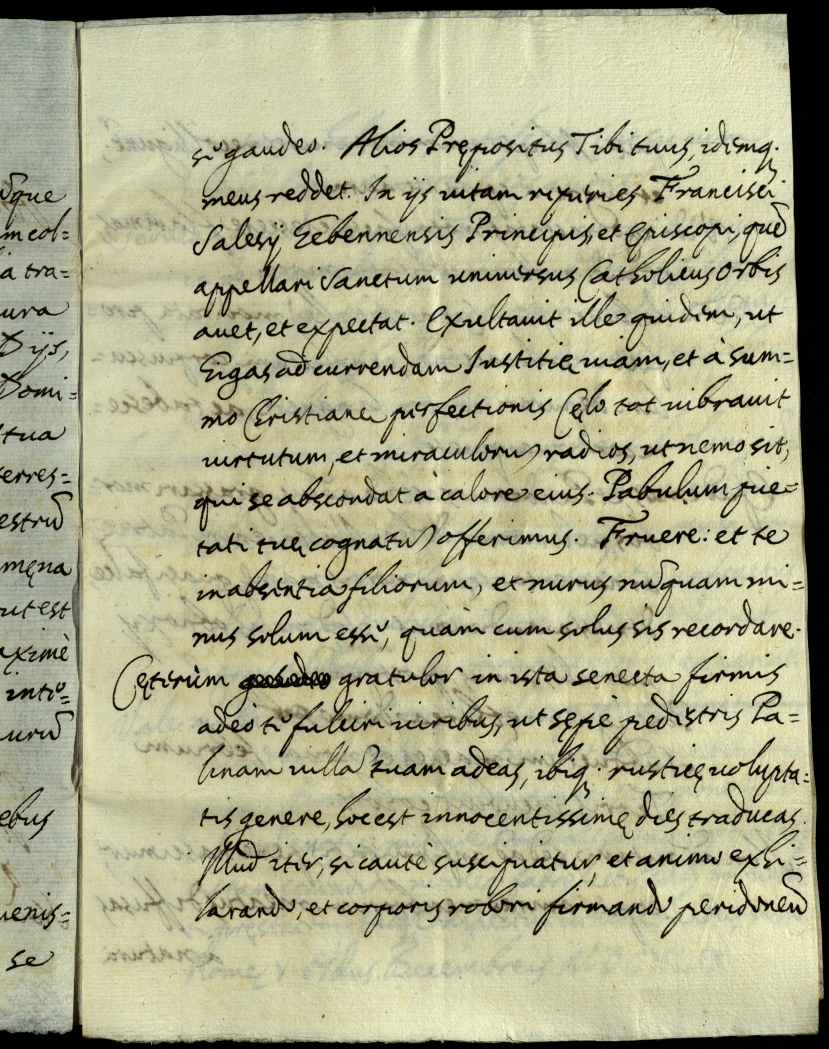 ūque
m col=
a tra=
ura
Dijs,
Domi=
tua
erres=
estrū
męna
ut est
aximè
inti=
urū
ebus
uenis=
se
sē gaudeo. Alios Prępositus Tibi tuus, idemq.
meus reddet. In ijs uitam reperies Francisci
Salesij Gebennensis Principis, et Episcopi, quē
appellari Sanctum uniuersus Catholicus Orbis
auet, et expectat. Exultauit ille quidem, ut
Gigas ad currendam Iustitię uiam, et à sum=
mo Christianę perfectionis Cęlo tot uibrauit
uirtutum, et miraculorū radios, ut nemo sit,
qui se abscondat à calore eius. Pabulum pie=
tati tuę cognatū offerimus. Fruere: et te
in absentia filiorum, et nurus nūquam mi=
nus solum esse, quàm cum solus sis recordare.
Cęterùm gratulor in ista senecta firmis
adeò te fulciri uiribus, ut sępè pedestris Pa=
linam uillā tuam adeas, ibiq. rusticę uolupta=
tis genere, hoc est innocentissimę dies traducas.
Illud iter, si cautè suscipiatur, et animo exhi=
larando, et corporis robori firmando peridoneū